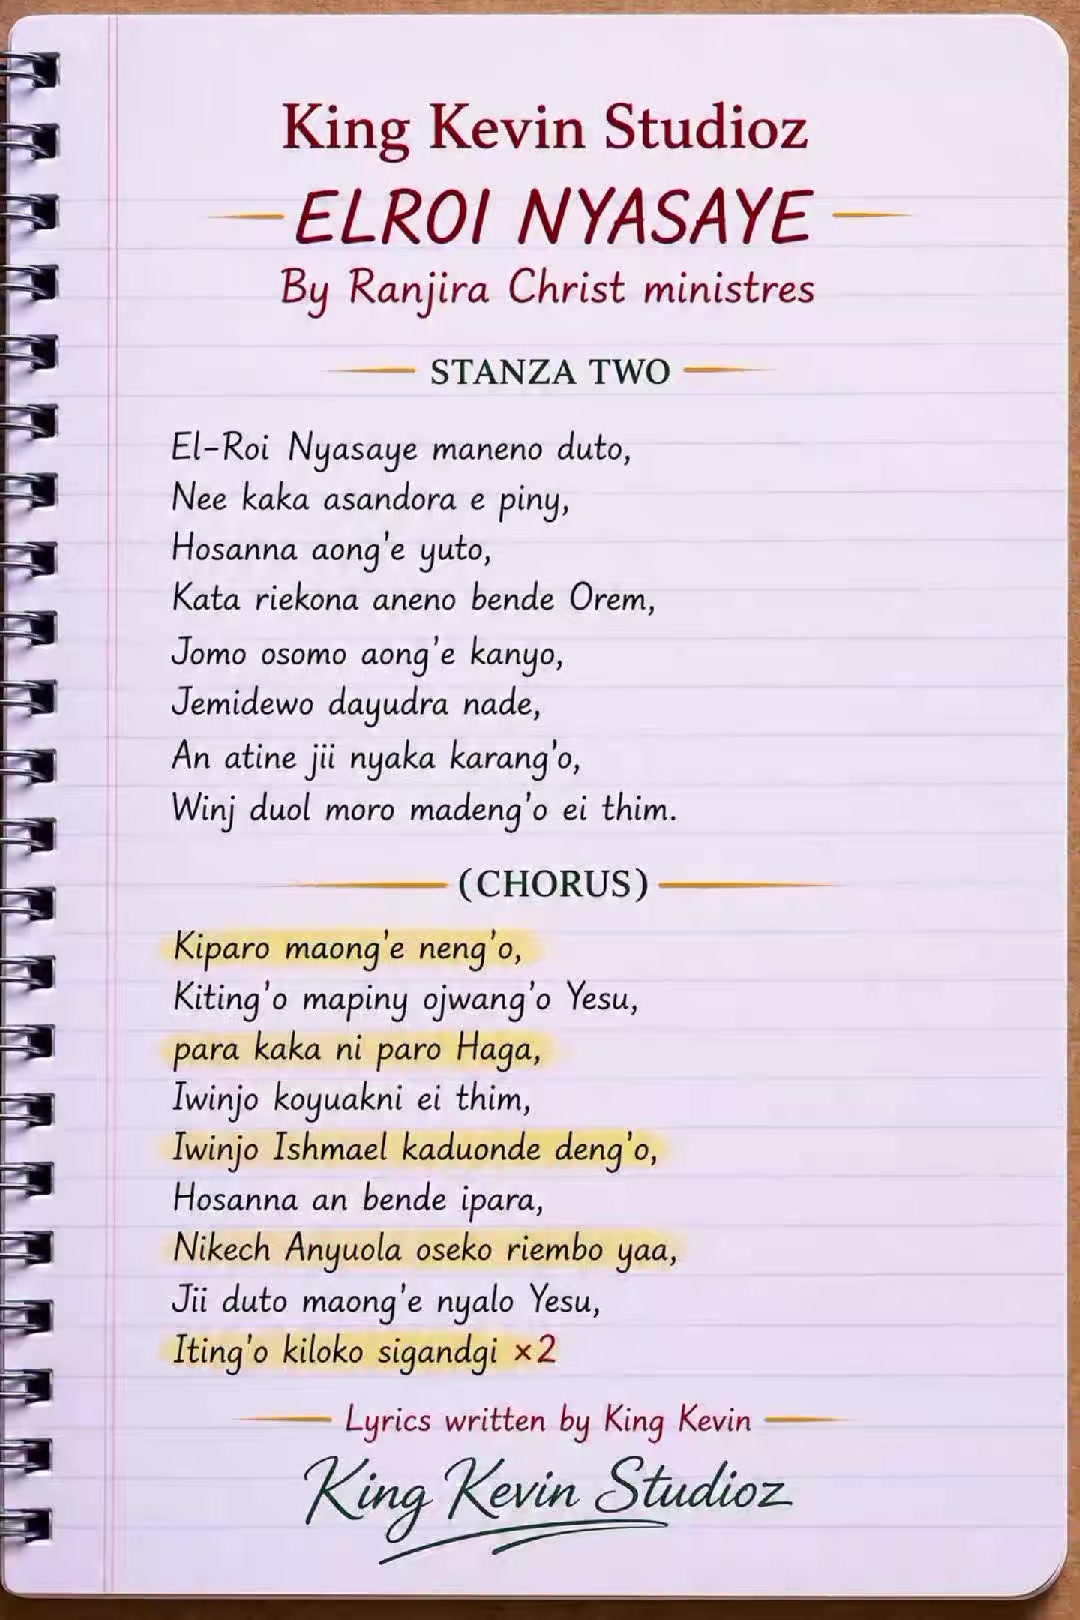 King Kevin Studioz
ELROI NYASAYE
By Ranjira Christ ministres
STANZA TWO
El-Roi Nyasaye maneno duto,
Nee kaka asandora e piny,
Hosanna aong'e yuto,
Kata riekona aneno bende Orem,
Jomo osomo aong'e kanyo,
Jemidewo dayudra nade,
An atine jii nyaka karang'o,
Winj duol moro madeng'o ei thim.
(CHORUS)
Kiparo maong'e neng'o,
Kiting'o mapiny ojwang'o Yesu,
para kaka ni paro Haga,
Iwinjo koyuakni ei thim,
Iwinjo Ishmael kaduonde deng'o,
Hosanna an bende ipara,
Nikech Anyuola oseko riembo yaa,
Jii duto maong'e nyalo Yesu,
Iting'o kiloko sigandgi ×2
Lyrics written by King Kevin
King Kevin Studioz